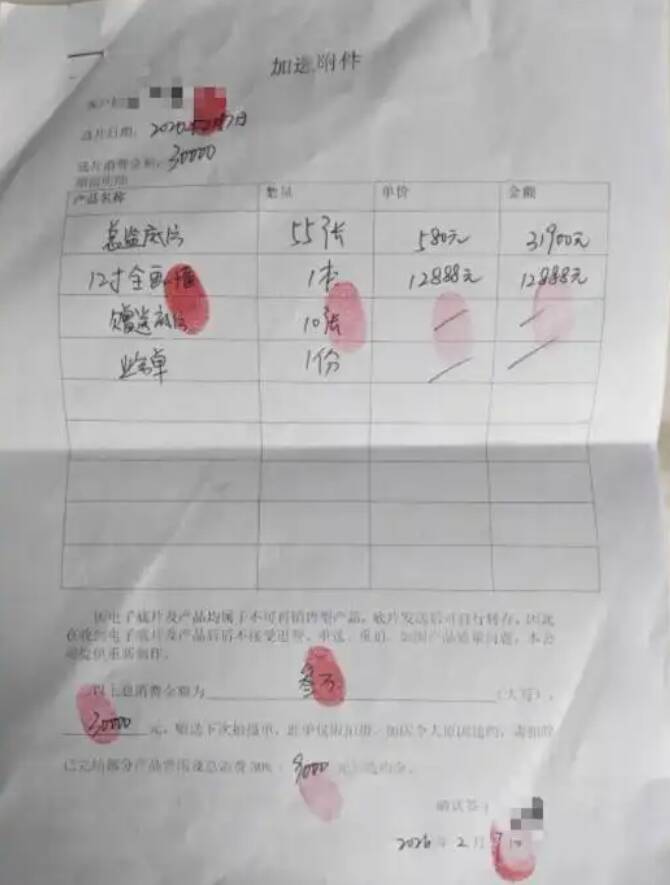 加选附件
客户
选片日期：2026年2月7日
选片消费金额：30000
产品名称 数量 单价 金额
总监底片 55张 580元 31900元
12寸全画册 1本 12888元 12888元
赠送底片 10张 / /
1份 / /
因电子底片及产品均属于不可再销售型产品，底片发送后可自行转存，因此
在收到电子底片及产品后后不接受退费、重选、重拍。如因产品质量问题，本公
司提供重新制作。
以上总消费金额为 叁万 （大写），
30000 元，赠送下次拍摄单，此单仅限拍摄。如因个人原因违约，需扣除
已完结部分产品费用及总消费30%：9000 元
确认签：
2026 年 2 月 7 日